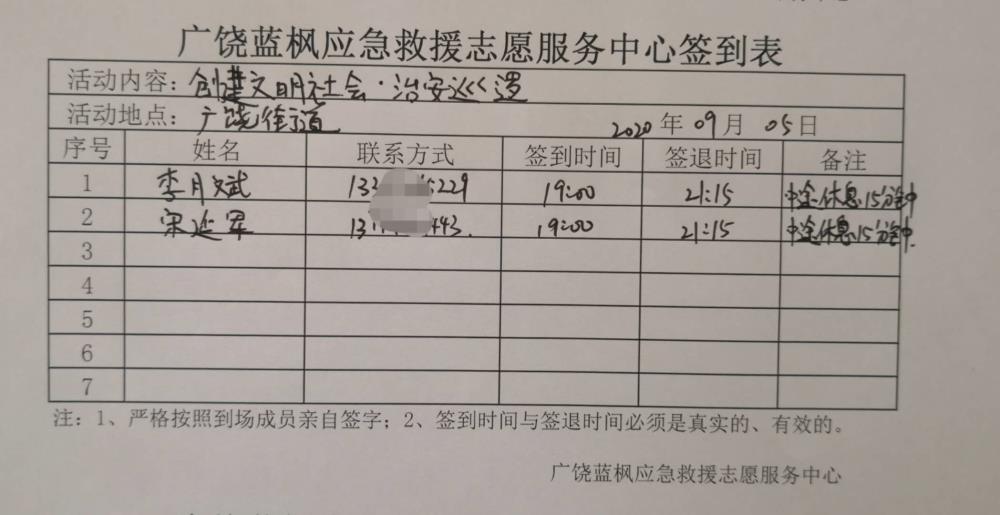 广饶蓝枫应急救援志愿服务中心签到表
活动内容：创建文明社会·治安巡逻
活动地点：广饶街道 2020年09月05日
序号 姓名 联系方式 签到时间 签退时间 备注
1 李月斌 133 229 19:00 21:15 中途休息15分钟
2 宋延军 13 43. 19:00 21:15 中途休息15分钟
3
4
5
6
7
注：1、严格按照到场成员亲自签字；2、签到时间与签退时间必须是真实的、有效的。
广饶蓝枫应急救援志愿服务中心